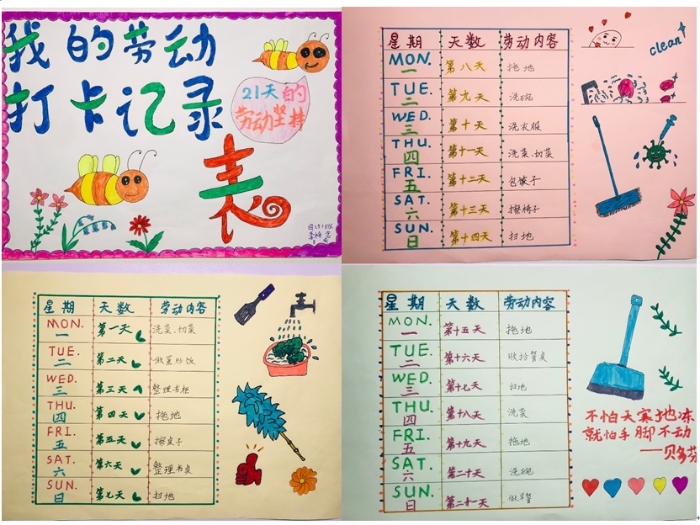 我的劳动
打卡记录
表
21天的
劳动坚持
星期 天数 劳动内容
MON. 一 第八天 拖地
TUE. 二 第九天 洗碗
WED. 三 第十天 洗衣服
THU. 四 第十一天 洗菜、切菜
FRI. 五 第十二天 包饺子
SAT. 六 第十三天 擦椅子
SUN. 日 第十四天 扫地
clean
星期 天数 劳动内容
MON. 一 第一天 洗菜、切菜
TUE. 二 第二天 做蛋炒饭
WED. 三 第三天 整理书柜
THU. 四 第四天 拖地
FRI. 五 第五天 擦桌子
SAT. 六 第六天 整理书桌
SUN. 日 第七天 扫地
星期 天数 劳动内容
MON. 一 第十五天 拖地
TUE. 二 第十六天 收拾餐桌
WED. 三 第十七天 扫地
THU. 四 第十八天 洗菜
FRI. 五 第十九天 拖地
SAT. 六 第二十天 洗碗
SUN. 日 第二十一天 做早餐
不怕天寒地冻
就怕手脚不动
——贝多芬